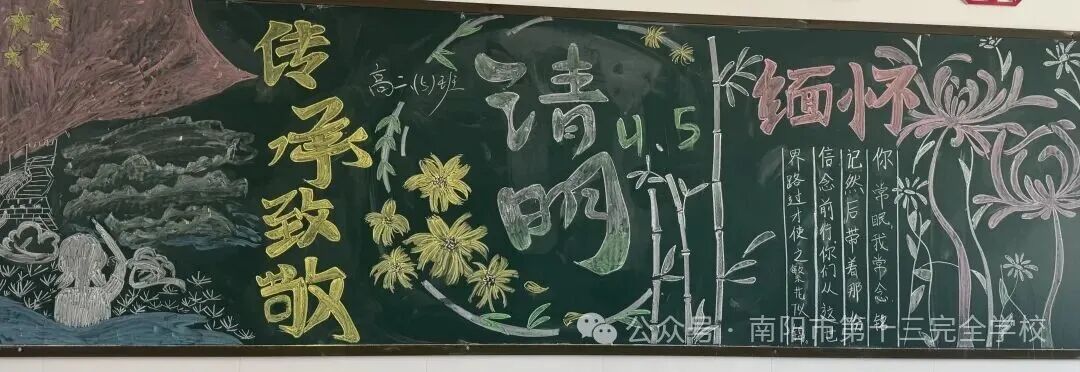 传承致敬
高二(5)班
清明
4.5
缅怀
你常眠我常念铭
记然后带着那份
信念前行你们从这世
界路过才使之繁花似
公众号·南阳市第十三完全学校